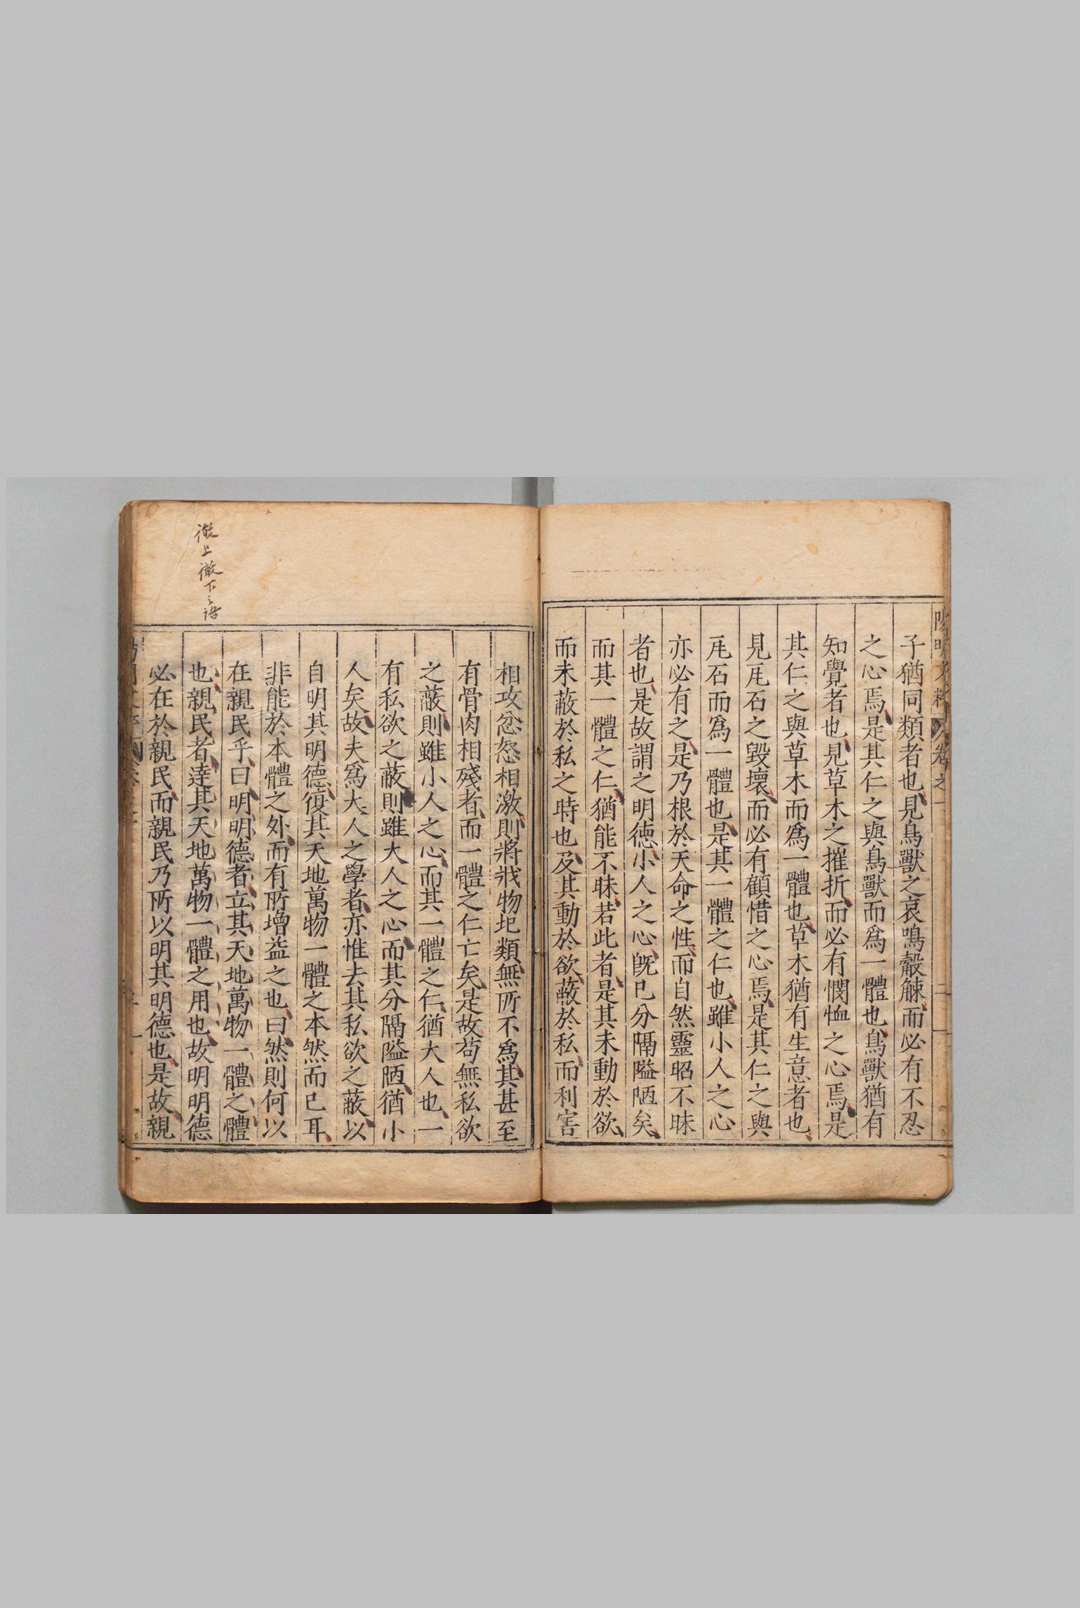 子猶同類者也見鳥獸之哀鳴觳觫而必有不忍
之心焉是其仁之與鳥獸而為一體也鳥獸猶有
知覺者也見草木之摧折而必有憫恤之心焉是
其仁之與草木而爲一體也草木猶有生意者也
見瓦石之毀壞而必有顧惜之心焉是其仁之與
瓦石而爲一體也是其一體之仁也雖小人之心
亦必有之是乃根於天命之性而自然靈昭不昧
者也是故謂之明德小人之心旣已分隔隘陋矣
而其一體之仁猶能不昧若此者是其未動於欲
而未蔽於私之時也及其動於欲蔽於私而利害
徹上徹下之語
相攻忿怒相激則將戕物圮類無所不爲其甚至
有骨肉相殘者而一體之仁亡矣是故苟無私欲
之蔽則雖小人之心而其一體之仁猶大人也一
有私欲之蔽則雖大人之心而其分隔隘陋猶小
人矣故夫爲大人之學者亦惟去其私欲之蔽以
自明其明德復其天地萬物一體之本然而已耳
非能於本體之外而有所增益之也曰然則何以
在親民乎曰明明德者立其天地萬物一體之體
也親民者達其天地萬物一體之用也故明明德
必在於親民而親民乃所以明其明德也是故親